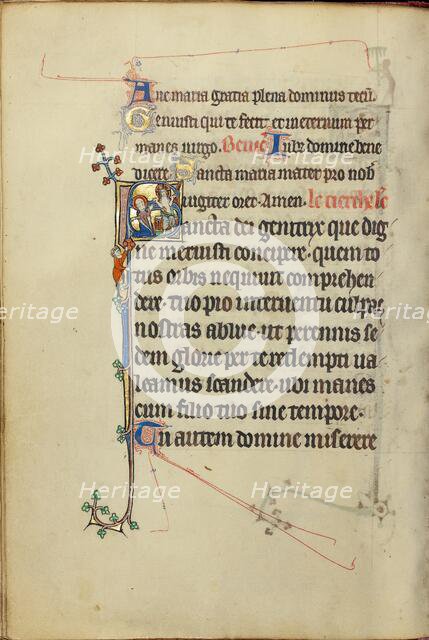 Aue maria gratia plena dominus tecū.
Genuisti qui te fecit. et in eternum per
manes uirgo. Benic Iube domine bene
dicere. Sancta maria mater pro nob̄
iugiter oret. Amen. le tierche lc̄
Sancta dei genitrix que dig
ne meruisti concipere. quem to
tus orbis nequiuit comprehen
dere. tuo pio interuentu culpas
nostras ablue. ut perennis se
dem glorie per te redempti ua
leamus scandere. ubi manes
cum filio tuo sine tempore.
Tu autem domine miserere
Heritage Images
Heritage Images
Heritage Images
Heritage Images
Heritage Images